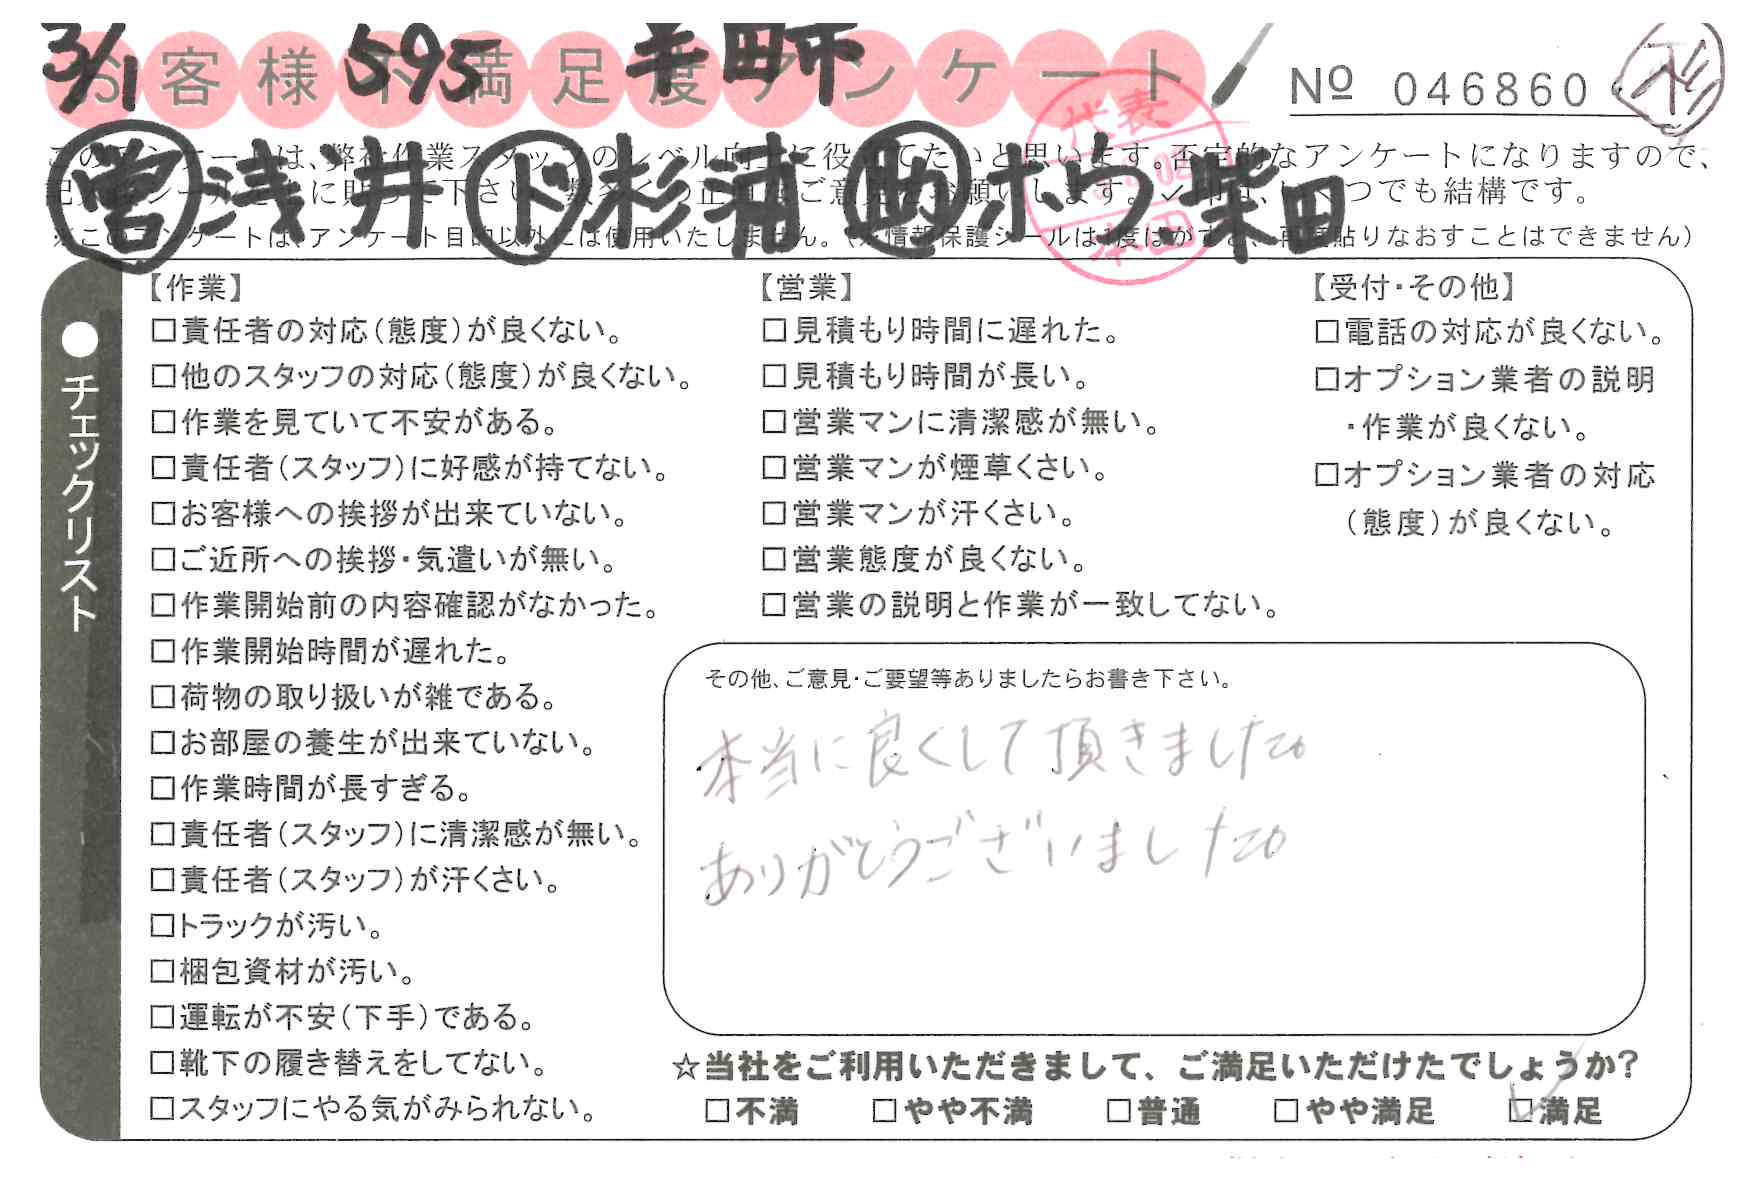 3/1 595 半田市
お客様不満足度アンケート
Nº 046860 杉
このアンケートは、弊社作業スタッフのレベル向上に役立てたいと思います。否定的なアンケートになりますので、
営 浅井 ド 杉浦 助 ホウ 柴田
※このアンケートは、アンケート目的以外には使用いたしません。
代表
本田
チェックリスト
【作業】
□責任者の対応(態度)が良くない。
□他のスタッフの対応(態度)が良くない。
□作業を見ていて不安がある。
□責任者(スタッフ)に好感が持てない。
□お客様への挨拶が出来ていない。
□ご近所への挨拶・気遣いが無い。
□作業開始前の内容確認がなかった。
□作業開始時間が遅れた。
□荷物の取り扱いが雑である。
□お部屋の養生が出来ていない。
□作業時間が長すぎる。
□責任者(スタッフ)に清潔感が無い。
□責任者(スタッフ)が汗くさい。
□トラックが汚い。
□梱包資材が汚い。
□運転が不安(下手)である。
□靴下の履き替えをしてない。
□スタッフにやる気がみられない。
【営業】
□見積もり時間に遅れた。
□見積もり時間が長い。
□営業マンに清潔感が無い。
□営業マンが煙草くさい。
□営業マンが汗くさい。
□営業態度が良くない。
□営業の説明と作業が一致してない。
【受付・その他】
□電話の対応が良くない。
□オプション業者の説明
・作業が良くない。
□オプション業者の対応
(態度)が良くない。
その他、ご意見・ご要望等ありましたらお書き下さい。
本当に良くして頂きました。
ありがとうございました。
☆当社をご利用いただきまして、ご満足いただけたでしょうか?
□不満 □やや不満 □普通 □やや満足 ☑満足